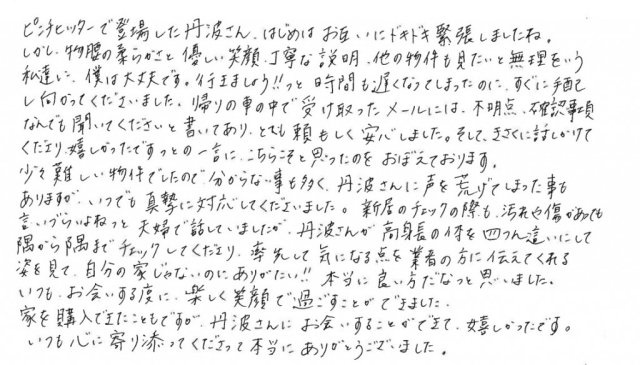 ピンチヒッターで登場した丹波さん、はじめはお互いにドキドキ緊張しましたね。
しかし、物腰の柔らかさと優しい笑顔、丁寧な説明、他の物件も見たいと無理をいう
私達に、僕は大丈夫です。行きましょう!!っと時間も遅くなってしまったのに、すぐに手配
し向かってくださいました。帰りの車の中で受け取ったメールには、不明点、確認事項
なんでも聞いてくださいと書いてあり、とても頼もしく安心しました。そして、きさくに話しかけて
くださり、嬉しかったですっとの一言に、こちらこそと思ったのをおぼえております。
少々難しい物件でしたので、分からない事も多く、丹波さんに声を荒げてしまった事も
ありますが、いつでも真摯に対応してくださいました。新居のチェックの際も、汚れや傷があっても
言いづらいよねっと夫婦で話していましたが、丹波さんが高身長の体を四つん這いにして
隅から隅までチェックしてくださり、率先して気になる点を業者の方に伝えてくれる
姿を見て、自分の家じゃないのにありがたい!!本当に良い方だなっと思いました。
いつも、お会いする度に、楽しく笑顔で過ごすことができました。
家を購入できたこともですが、丹波さんにお会いすることができて、嬉しかったです。
いつも心に寄り添ってくださって本当にありがとうございました。